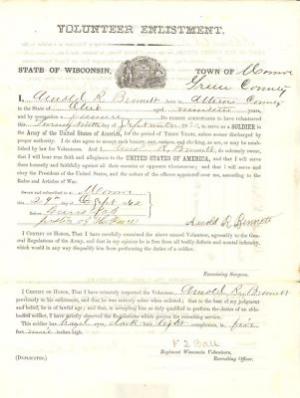 VOLUNTEER ENLISTMENT.
STATE OF WISCONSIN, TOWN OF Monroe
Green County
I, Arnold R Bennett born in Athens County
in the State of Ohio aged nineteen years,
and by occupation a DO HEREBY ACKNOWLEDGE to have volunteered
this day of September 1862, to serve as a SOLDIER in
the Army of the United States of America, for the period of THREE YEARS, unless sooner discharged by proper
authority. I do also agree to accept such bounty, pay, rations, and clothing, as are, or may be established
by law for Volunteers. And I, Arnold R Bennett do solemnly swear,
that I will bear true faith and allegiance to the UNITED STATES OF AMERICA, and that I will serve
them honestly and faithfully against all their enemies or opposers whomsoever; and that I will observe and
obey the President of the United States, and the orders of the officers appointed over me, according to the
Rules and Articles of War.
Sworn and subscribed to at Monroe
this 29th day of Sept 1862
Before
Justice of the Peace
Arnold R Bennett
I CERTIFY ON HONOR, That I have carefully examined the above named Volunteer, agreeably to the General
Regulations of the Army, and that in my opinion he is free from all bodily defects and mental infirmity,
which would in any way disqualify him from performing the duties of a soldier.
Examining Surgeon.
I CERTIFY ON HONOR, That I have minutely inspected the Volunteer, Arnold R Bennett
previously to his enlistment, and that he was entirely sober when enlisted; that to the best of my judgment
and belief he is of lawful age; and that, in accepting him as duly qualified to perform the duties of an able-
bodied soldier, I have strictly observed the Regulations which govern the recruiting service.
This soldier has hazel eyes, dark hair, light complexion, is five
feet inches high.
F Z Ball
Regiment Wisconsin Volunteers,
Recruiting Officer.
(DUPLICATES.)